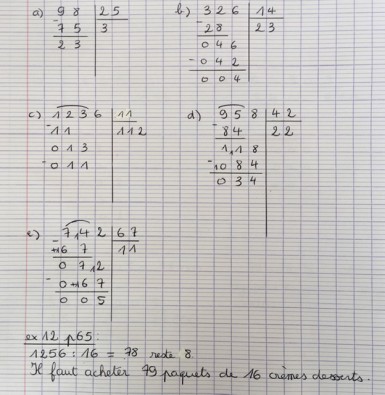 a) 98 | 25
- 75 | 3
23
b) 326 | 14
- 28 | 23
046
- 042
004
c) 1236 | 11
- 11 | 112
013
- 011
d) 958 | 42
- 84 | 22
118
- 084
034
e) 742 | 67
- 67 | 11
072
- 067
005
ex 12 p65:
1256 : 16 = 78 reste 8.
Il faut acheter 79 paquets de 16 crèmes desserts.